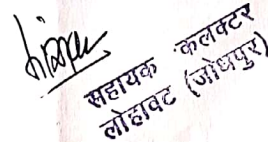 सहायक कलक्टर
लोहावट (जोधपुर)